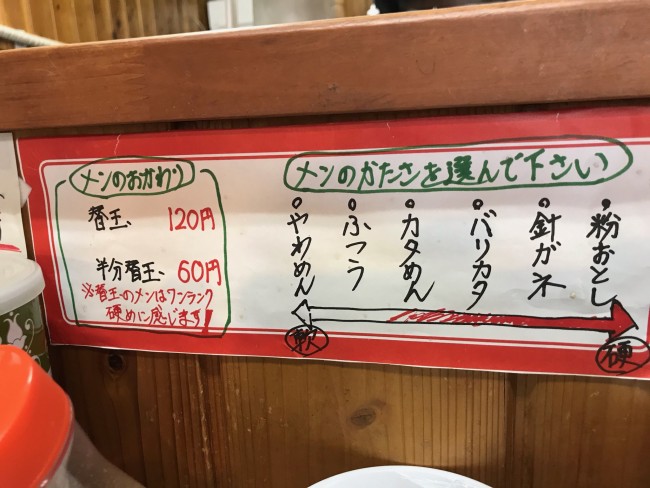 メンのおかわり
替玉、120円
半分替玉、60円
※替玉のメンはワンランク
硬めに感じます!
メンのかたさを選んで下さい
やわめん
ふつう
カタめん
バリカタ
針ガネ
粉おとし
軟
硬